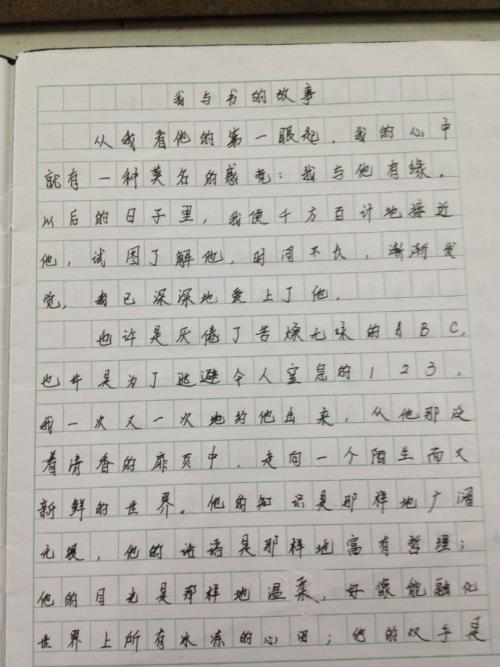 我与书的故事
从我看他的第一眼起,我的心中
就有一种莫名的感觉:我与他有缘。
以后的日子里,我便千方百计地接近
他,试图了解他,时间不长,渐渐发
觉,我已深深地爱上了他。
也许是厌倦了苦燥无味的ABC,
也许是为了逃避令人窒息的123,
我一次又一次地约他出来,从他那泛
着清香的扉页中,走向一个陌生而又
新鲜的世界。他的知识是那样地广阔
无垠,他的话语是那样地富有哲理;
他的目光是那样地温柔,好像能融化
世界上所有冰冻的心田;他的双手是